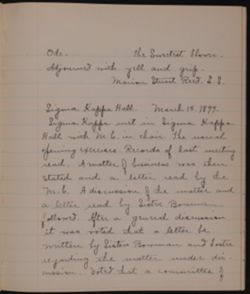 Ode. the Sweetest Flower.
Adjourned with yell and grip.
Marian Stuart Reid. S. S.
Sigma Kappa Hall. March 15, 1897.
Sigma Kappa met in Sigma Kappa
Hall with M. C. in chair. The usual
opening exercises. Records of last meeting
read. A matter of business was then
stated and a letter read by the
M. C. A discussion of the matter and
a letter read by Sister Bowman
followed. After a general discussion
it was voted that a letter be
written by Sister Bowman and Foster
regarding the matter under dis-
cussion. Voted that a committee of